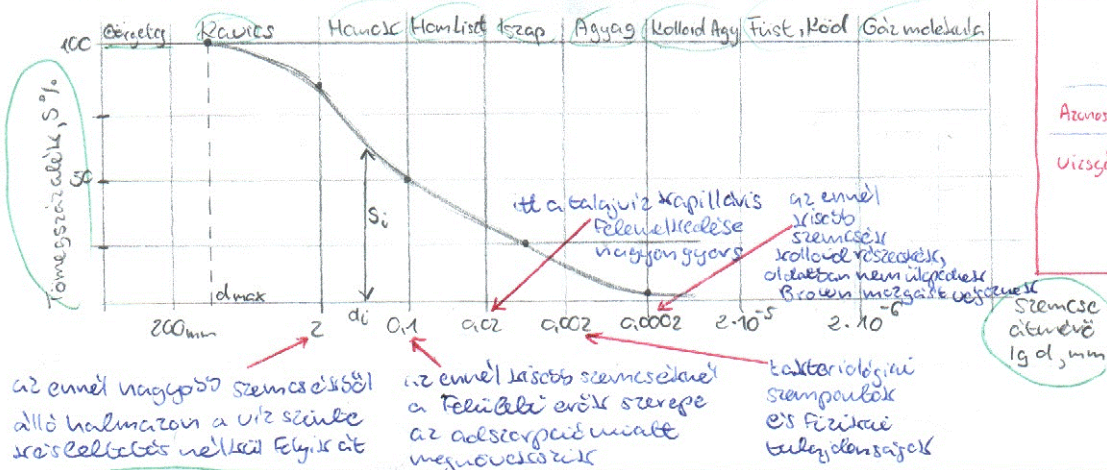 Görgeteg Kavics Homok HomLiszt Iszap Agyag Kolloid Agy Füst, Köd Gázmolekula
100
50
Tömegszázalék, S%
Si
dmax
di
200mm 2 0,1 0,02 0,002 0,0002 2·10⁻⁵ 2·10⁻⁶
Szemcse
átmérő
lg d, mm
itt a talajvíz kapilláris
felemelkedése
nagyon gyors
az ennél
kisebb
szemcsék
kolloid részecskék,
oldatban nem ülepednek
Brown mozgást végeznek
az ennél nagyobb szemcsékből
álló halmazon a víz szinte
késleltetés nélkül folyik át
az ennél kisebb szemcséknél
a felületi erők szerepe
az adszorpció miatt
megnövekszik
bakteriológiai
szempontok
és fizikai
tulajdonságok
Azonos
Vizsgá